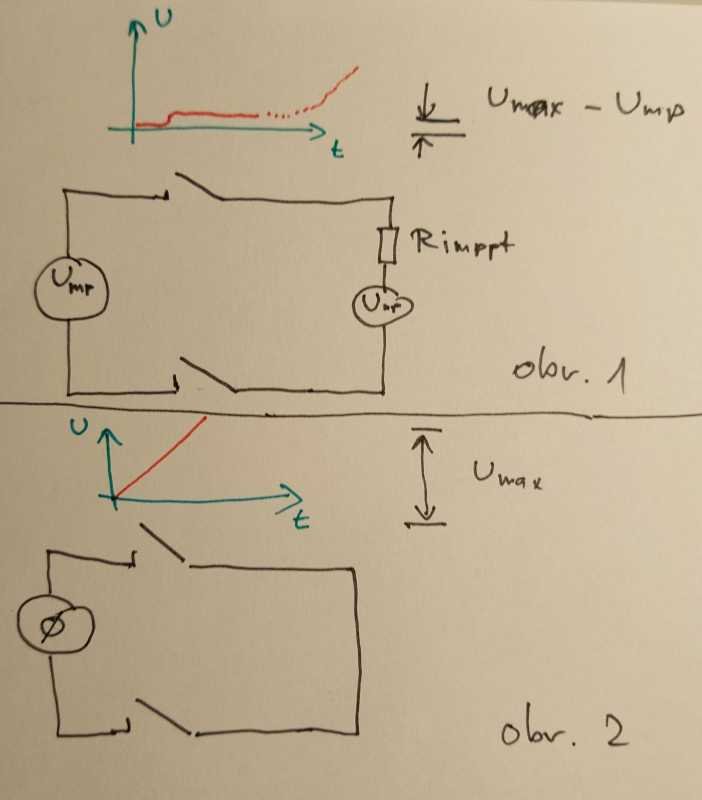 U
Umax - Ump
t
Rimppt
Ump
obr. 1
U
Umax
t
Ø
obr. 2